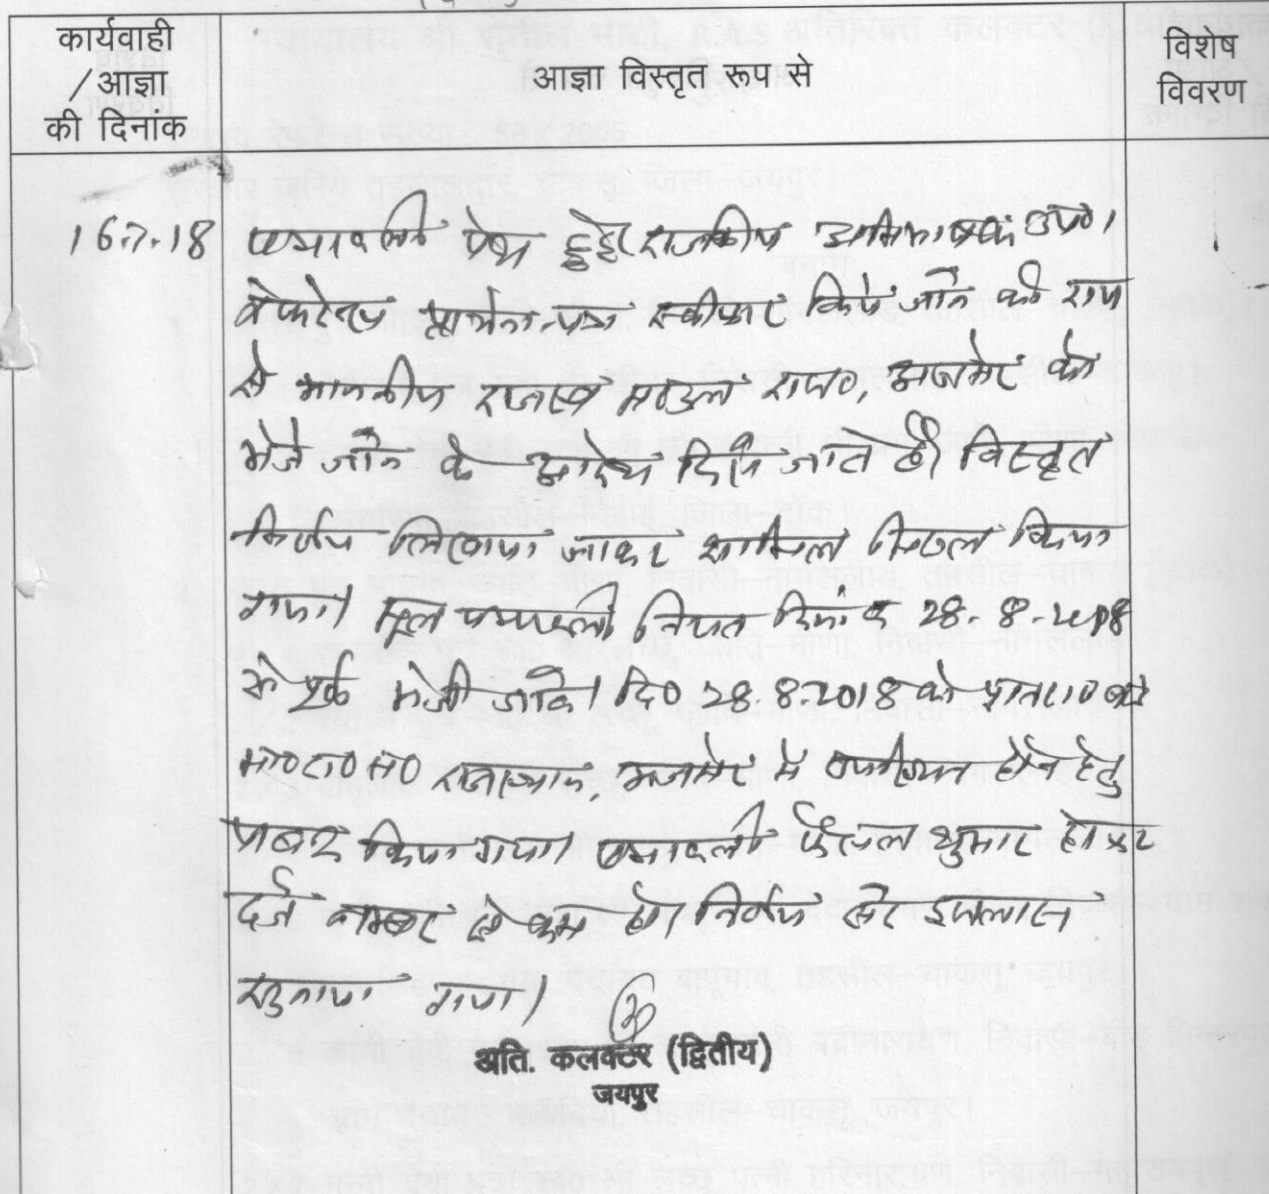 कार्यवाही
/आज्ञा
की दिनांक
आज्ञा विस्तृत रूप से
विशेष
विवरण
16.7.18 पत्रावली पेश हुई। राजकीय अभिभाषक उप०।
रेफरेन्स प्रार्थना-पत्र स्वीकार किये जाने की राय
से माननीय राजस्व मण्डल राज०, अजमेर को
भेजे जाने के आदेश दिये जाते है। विस्तृत
निर्णय लिखाया जाकर शामिल मिसल किया
गया। मूल पत्रावली नियत दिनांक 28.8.2018
से पूर्व भेजी जावे। दि० 28.8.2018 को
मा०रा०म० राजस्थान, अजमेर में उपस्थित होने हेतु
पाबन्द किया गया। पत्रावली फैसल शुमार होकर
दर्ज नम्बर से कम हो, निर्णय सरे इजलास
सुनाया गया।
अति. कलक्टर (द्वितीय)
जयपुर